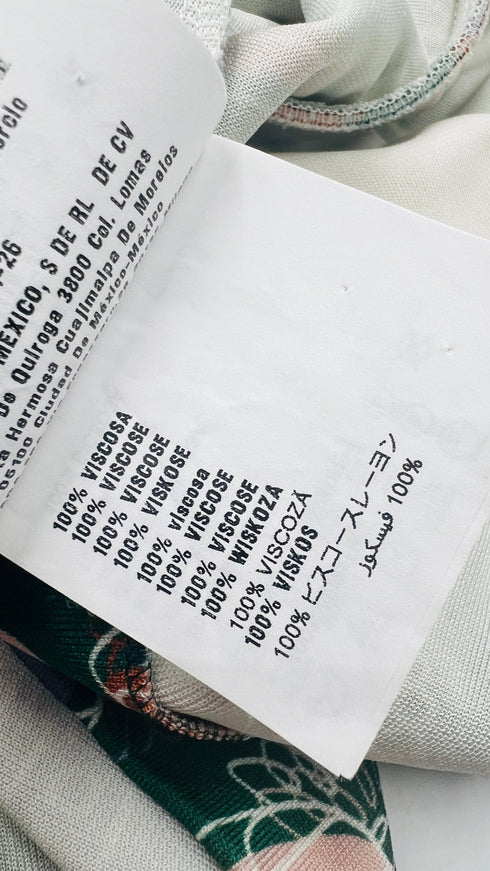 rcio
-26
MEXICO, S DE RL DE CV
De Quiroga 3800 Col. Lomas
Hermosa Cuajimalpa De Morelos
05100 Ciudad De México-México
100% VISCOSA
100% VISCOSE
100% VISCOSE
100% VISKOSE
100% viscosa
100% VISCOSE
100% VISCOSE
100% WISKOZA
100% VISCOZĂ
100% VISKOS
100% ビスコースレーヨン
100% فيسكوز